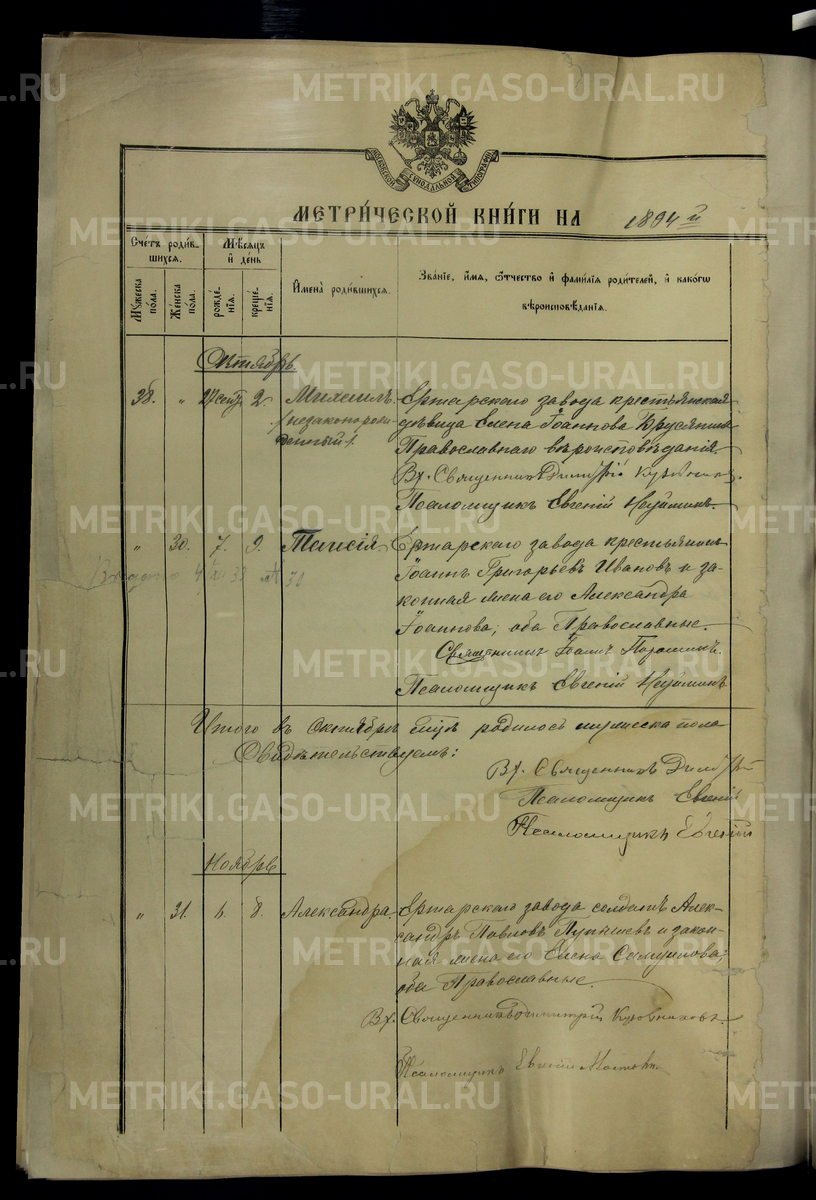 МОСКОВСКОЙ СѴНОДАЛЬНОЙ ТИПОГРАФІИ
МЕТРИ́ЧЕСКОЙ КНИ́ГИ НА 1894 й
Сче́тъ роди́в-
шихся.
Мꙋжеска пола.
Же́нска по́ла.
Мѣсяцъ
и де́нь
рожде́-
нія.
креще́-
нія.
И́мена̀ роди́вшихся.
Зва́ніе, и́мя, ѻ́тчество и҆ фами́лія роди́телей, и҆ како́гѡ
вѣроисповѣ́данія.
Октябрь
38. " 27 сент. 2. Михаилъ Ертарскаго завода крестьянская
/незаконорож- дѣвица Елена Іоаннова Брусянина
денный/. Православнаго вѣроисповѣданія
Вр. Священникъ Димитрій
Псаломщикъ Евгеній
" 30. 7. 9. Таисія Ертарскаго завода крестьянинъ
Іоаннъ Григорьевъ Ивановъ и за-
конная жена его Александра
Іоаннова, оба Православные.
Священникъ Іоаннъ
Псаломщикъ Евгеній
Итого въ Октябрѣ мцѣ родилось мужеска пола
Свидѣтельствуемъ:
Вр. Священникъ Димитрій
Псаломщикъ Евгеній
Псаломщикъ Евгеній
Ноябрь
" 31. 6. 8. Александра Ертарскаго завода солдатъ Алек-
сандръ Павловъ и закон-
ная жена его Елена Самуилова;
оба Православные.
Вр. Священникъ Димитрій
Псаломщикъ Евгеній
METRIKI.GASO-URAL.RU